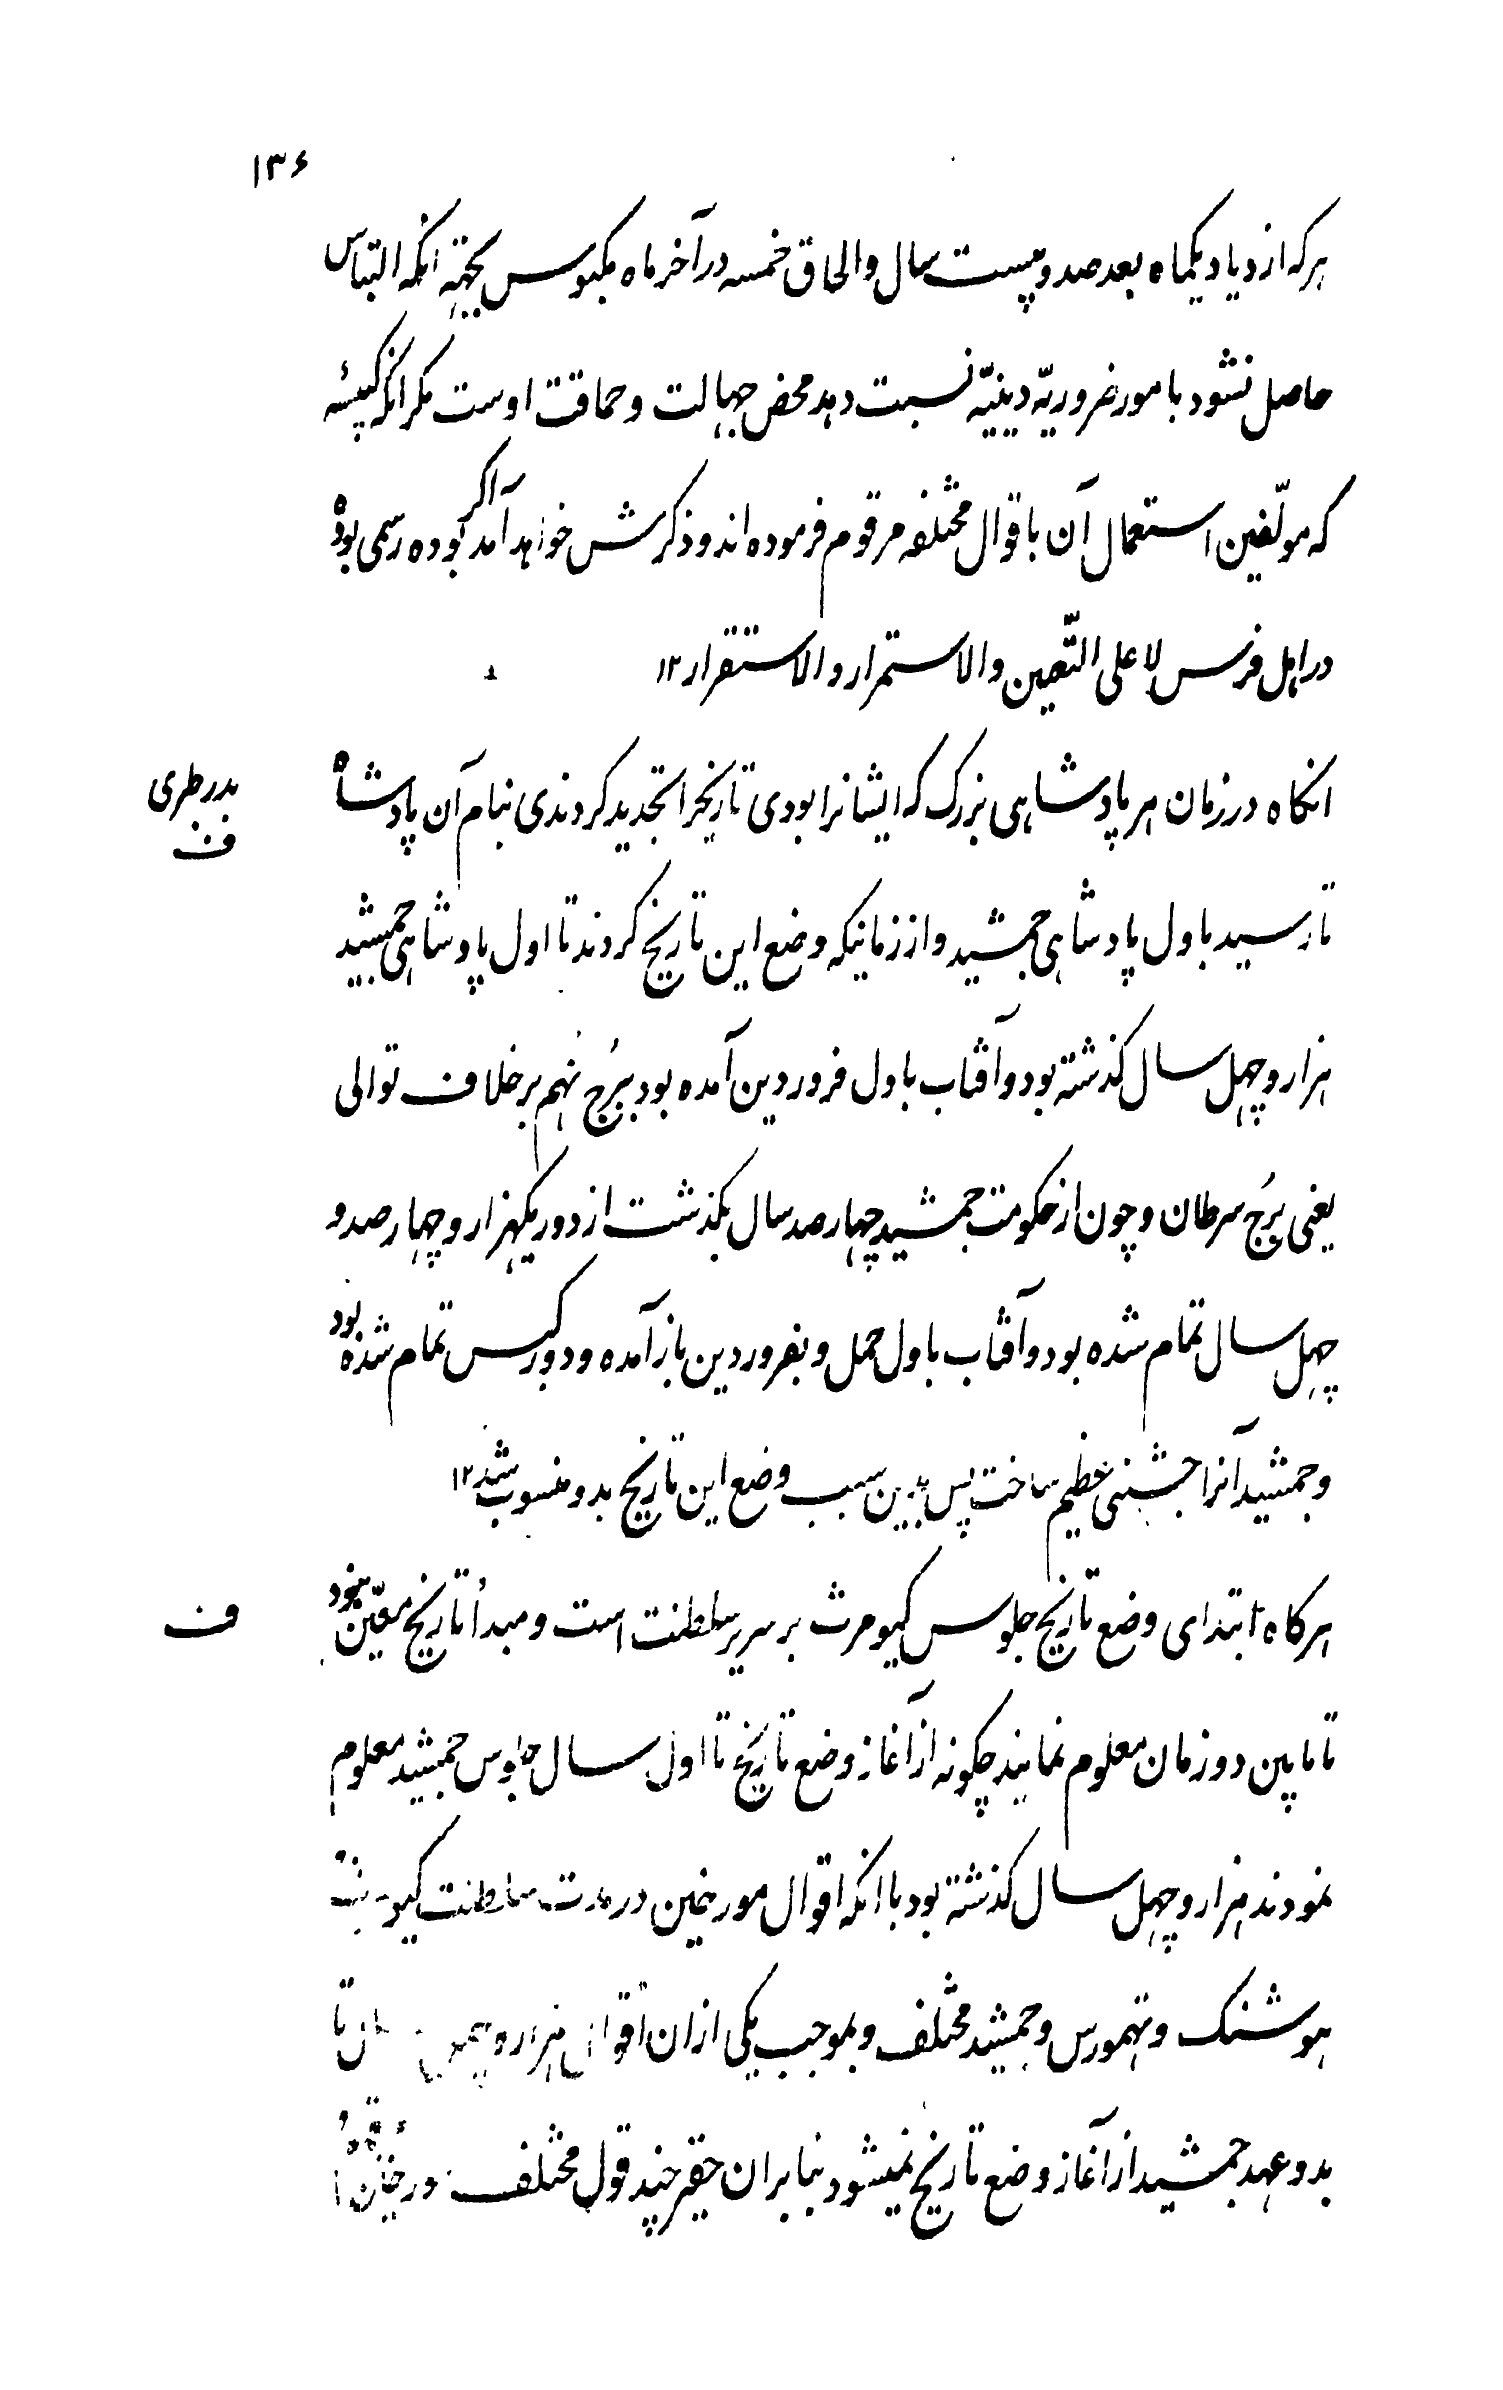 ۱۳۶
هرکه ازدیاد یکماه بعد صد و بیست سال و الحاق خمسه در آخر ماه مکبوس بجهة انکه التباس
حاصل نشود بامور ضروریّه دینیّه نسبت دهد محض جهالت و حماقت اوست مکر انکه کبیسهٔ
که مولّفین استعمال آن باقوال مختلفه مرقوم فرموده اند و ذکرش خواهد آمد اکر بوده رسمی بوده
در اهل فرس لا علی التّعین والاستمرار والاستقرار ۱۲
بدر طبری
ف
انکاه در زمان هر پادشاهی بزرک که ایشانرا بودی تاریخرا تجدید کردندی بنام آن پادشاه
تا رسید باول پادشاهی جمشید و از زمانیکه وضع این تاریخ کردند تا اول پادشاهی جمشید
هزار و چهل سال کذشته بود و آفتاب باول فروردین آمده بود ببرُج نُهم بر خلاف توالی
یعنی برُج سرطان و چون از حکومت جمشید چهار صد سال بکذشت از دور یکهزار و چهار صد و
چهل سال تمام شده بود و آفتاب باول حمل و بفروردین باز آمده و دور کبس تمام شده بود
و جمشید آنرا جشنی عظیم ساخت پس بدین سبب وضع این تاریخ بدو منسوب شد ۱۲
ف
هرکاه ابتدای وضع تاریخ جلوس کیومرث بر سریر سلطنت است و مبدأ تاریخ معیّن نبود
تا مابین دو زمان معلوم نمایند چکونه از آغاز وضع تاریخ تا اول سال جلوس جمشید معلوم
نمودند هزار و چهل سال کذشته بود با انکه اقوال مورخین در مدت سلطنت
هوشنک و تهمورس و جمشید مختلف و بموجب یکی از ان اقوال هزار و چهل سال تا
بدو عهد جمشید از آغاز وضع تاریخ نمیشود بنابران حقیر چند قول مختلف در